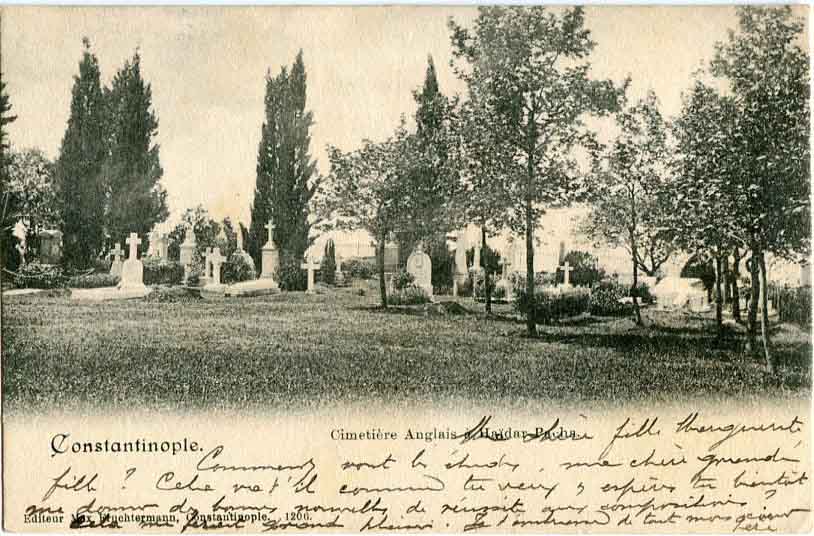 Constantinople.
Cimetière Anglais à Haïdar-Pacha.
Ma chère fille Marguerite
Comment vont les études, ma chère grande
fille ? Cela va t'il comme tu veux, espères tu bientôt
me donner de bonnes nouvelles de réussite aux compositions ?
Cela me ferait grand plaisir. Je t'embrasse de tout mon cœur
père
Editeur Max Fruchtermann, Constantinople. 1206.